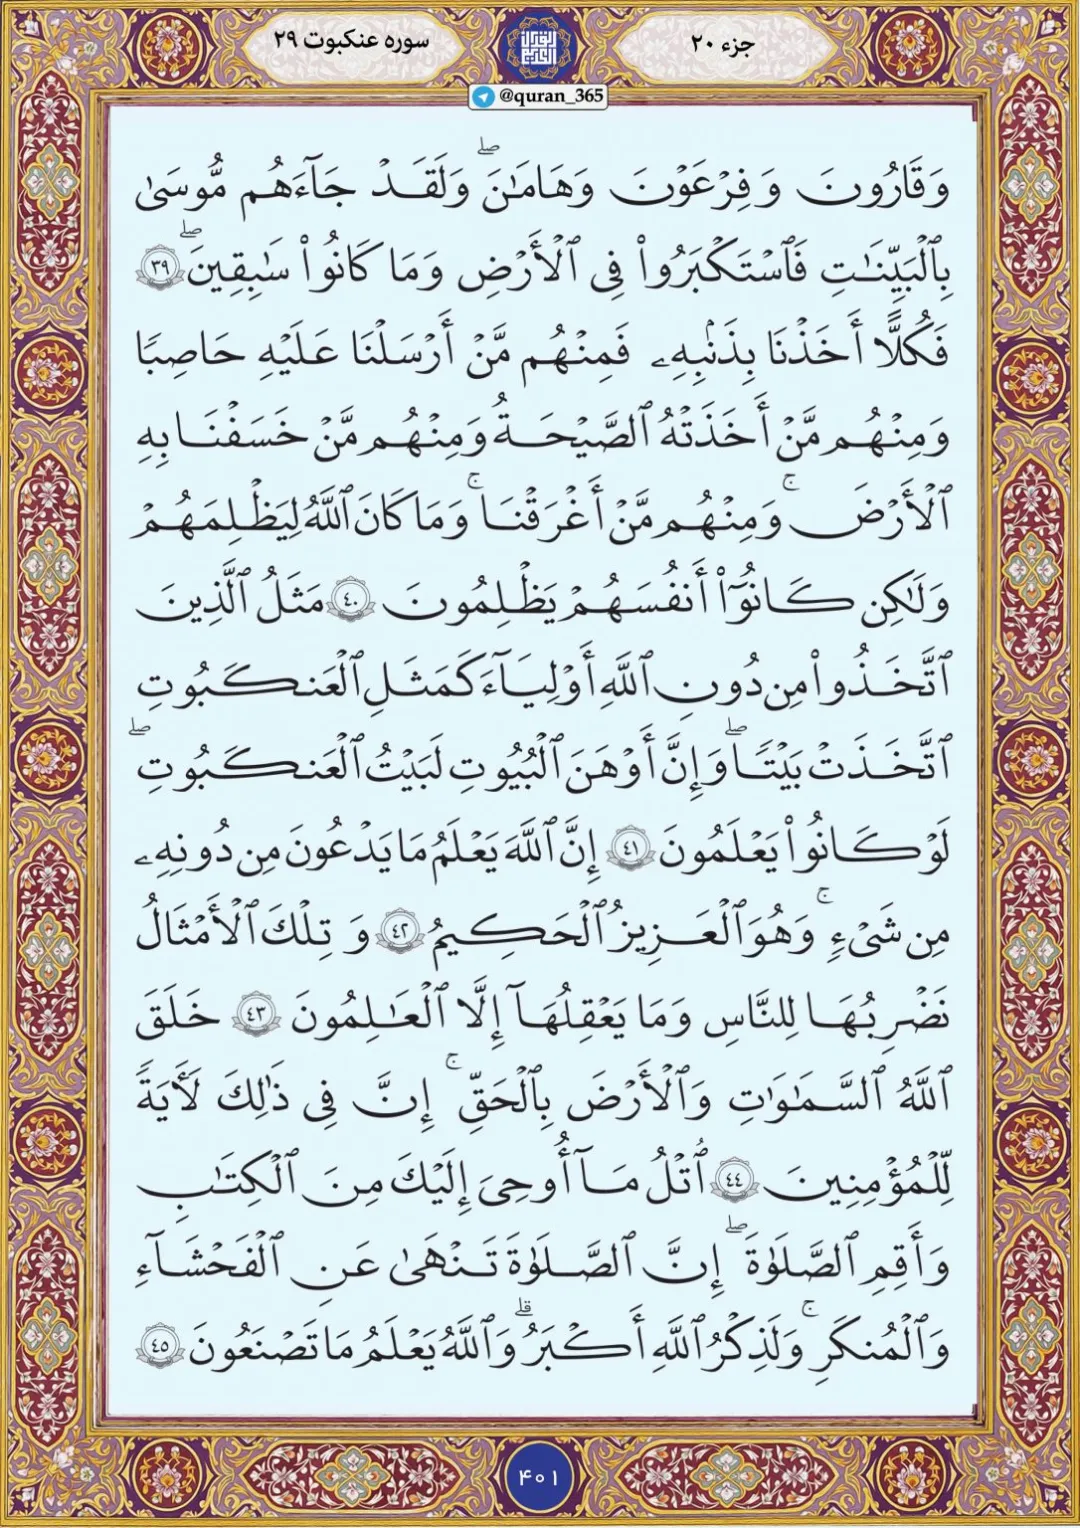 جزء ۲۰
سوره عنکبوت ۲۹
@quran_365
وَقَارُونَ وَفِرْعَوْنَ وَهَامَـٰنَ ۖ وَلَقَدْ جَآءَهُم مُّوسَىٰ
بِٱلْبَيِّنَـٰتِ فَٱسْتَكْبَرُوا۟ فِى ٱلْأَرْضِ وَمَا كَانُوا۟ سَـٰبِقِينَ ۖ ٣٩
فَكُلًّا أَخَذْنَا بِذَنۢبِهِۦ فَمِنْهُم مَّنْ أَرْسَلْنَا عَلَيْهِ حَاصِبًا
وَمِنْهُم مَّنْ أَخَذَتْهُ ٱلصَّيْحَةُ وَمِنْهُم مَّنْ خَسَفْنَا بِهِ
ٱلْأَرْضَ ۚ وَمِنْهُم مَّنْ أَغْرَقْنَا ۚ وَمَا كَانَ ٱللَّهُ لِيَظْلِمَهُمْ
وَلَـٰكِن كَانُوٓا۟ أَنفُسَهُمْ يَظْلِمُونَ ٤٠ مَثَلُ ٱلَّذِينَ
ٱتَّخَذُوا۟ مِن دُونِ ٱللَّهِ أَوْلِيَآءَ كَمَثَلِ ٱلْعَنكَبُوتِ
ٱتَّخَذَتْ بَيْتًا ۖ وَإِنَّ أَوْهَنَ ٱلْبُيُوتِ لَبَيْتُ ٱلْعَنكَبُوتِ ۖ
لَوْ كَانُوا۟ يَعْلَمُونَ ٤١ إِنَّ ٱللَّهَ يَعْلَمُ مَا يَدْعُونَ مِن دُونِهِۦ
مِن شَىْءٍ ۚ وَهُوَ ٱلْعَزِيزُ ٱلْحَكِيمُ ٤٢ وَتِلْكَ ٱلْأَمْثَالُ
نَضْرِبُهَا لِلنَّاسِ وَمَا يَعْقِلُهَآ إِلَّا ٱلْعَـٰلِمُونَ ٤٣ خَلَقَ
ٱللَّهُ ٱلسَّمَـٰوَٰتِ وَٱلْأَرْضَ بِٱلْحَقِّ ۚ إِنَّ فِى ذَٰلِكَ لَـَٔايَةً
لِّلْمُؤْمِنِينَ ٤٤ ٱتْلُ مَآ أُوحِىَ إِلَيْكَ مِنَ ٱلْكِتَـٰبِ
وَأَقِمِ ٱلصَّلَوٰةَ ۖ إِنَّ ٱلصَّلَوٰةَ تَنْهَىٰ عَنِ ٱلْفَحْشَآءِ
وَٱلْمُنكَرِ ۚ وَلَذِكْرُ ٱللَّهِ أَكْبَرُ ۗ وَٱللَّهُ يَعْلَمُ مَا تَصْنَعُونَ ٤٥
۴۰۱